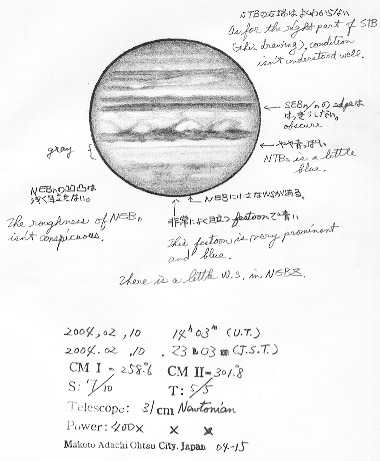 STBの右端はよくわからない
As for the right part of STB
(this drawing), condition
isn't understood well.
SEBn/nのedgeは
はっきりしない。
obscure
gray
やや青っぽい。
NTBs is a little
blue.
NEBnの凹凸は
浅く目立たない。
NEBに小さなWSがある。
The roughness of NEBn
isn't conspicuous.
非常によく目立つfestoonで青い
This festoon is very prominent
and blue.
There is a little W.S. in NEBZ.
2004, 02, 10 14h 03m (U.T.)
2004. 02 .10 . 23h 03m (J.S.T.)
CM I = 258°.6 CM II = 301°.8
S: 7/10 T: 5/5
Telescope: 31cm Newtonian
Power: 400x x x
Makoto Adachi Ohtsu City. Japan 04-15